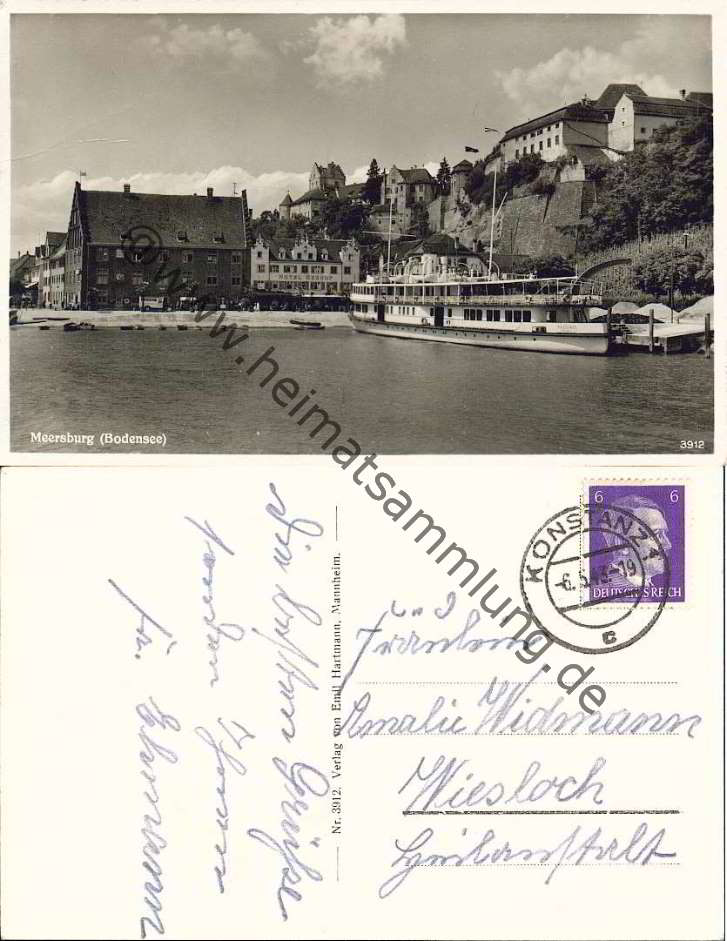 Meersburg (Bodensee)
3912
© www.heimatsammlung.de
6 6
DEUTSCHES REICH
KONSTANZ 1
6.5.43-19
c
Nr. 3912. Verlag von Emil Hartmann, Mannheim.
Fräulein
Amalie Widmann
Wiesloch
Heilanstalt
Die besten Grüße
sendet Ihnen
Fr.